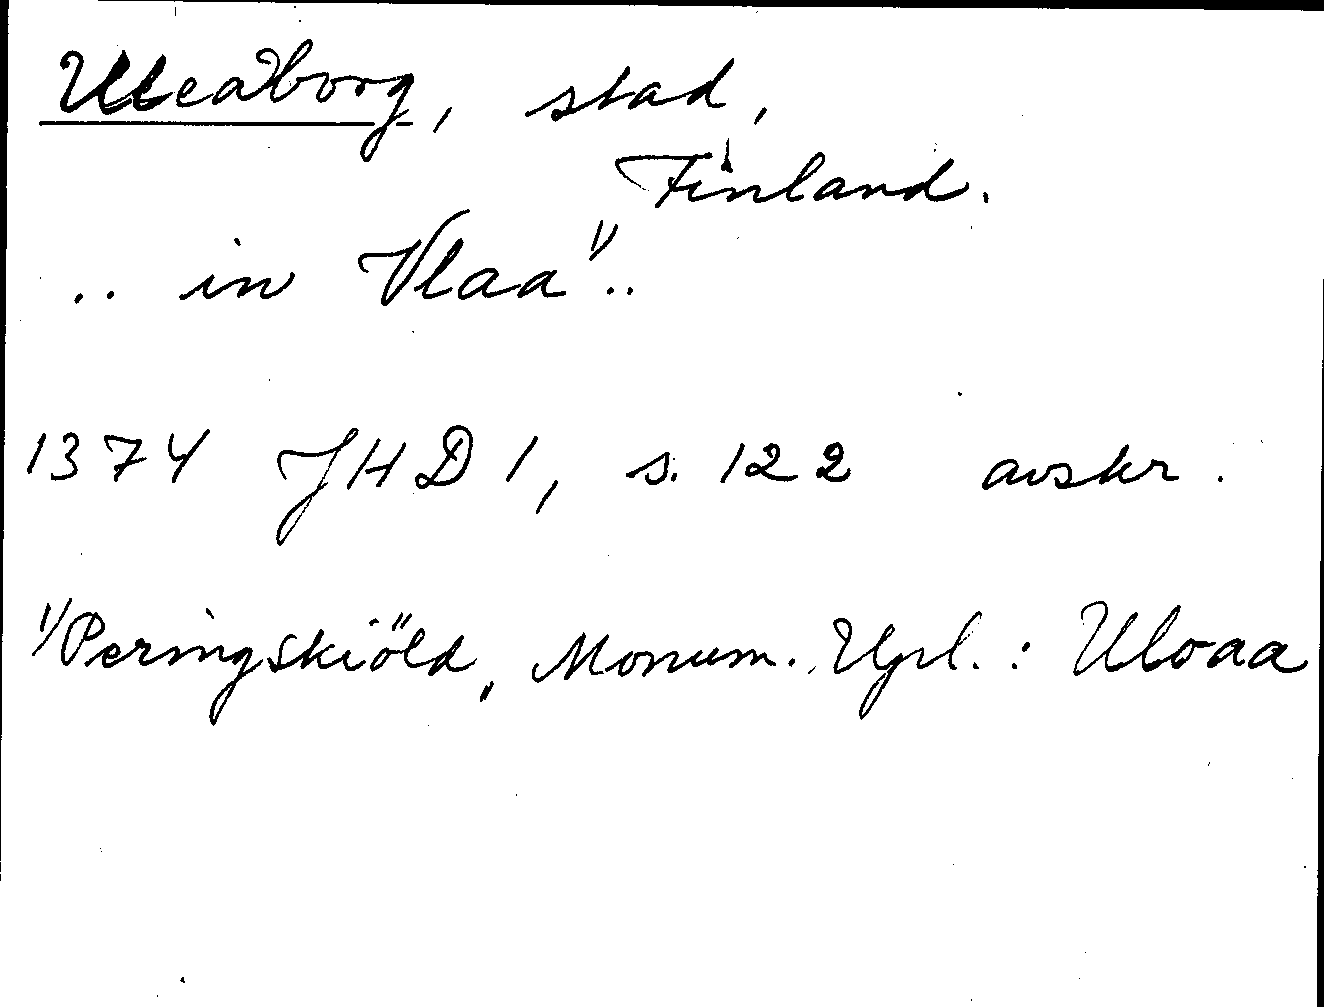 Uleaborg, stad,
Finland.
.. in Vlaa 1) ..
1374 JHD 1, s. 122 avskr.
1) Peringskiöld, Monum. Upl. : Uloaa